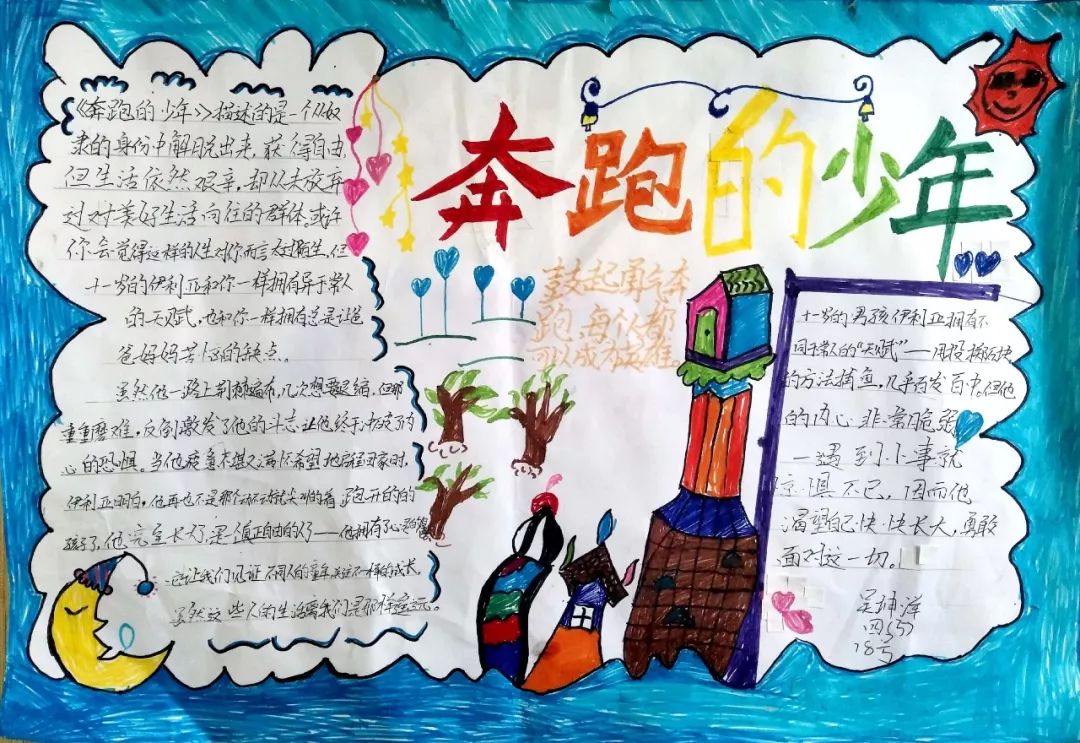 奔跑的少年
《奔跑的少年》描述的是一个从奴
隶的身份中解脱出来，获得自由
但生活依然艰辛，却从未放弃
过对美好生活向往的群体。或许
你会觉得这样的人生对你而言太过陌生，但
十一岁的伊利亚和你一样拥有异于常人
的天赋，也和你一样拥有总是让爸
爸妈妈苦恼的缺点。
虽然他一路上荆棘遍布，几次想要退缩，但那
重重磨难，反倒激发了他的斗志，让他终于冲破了内
心的恐惧。当他疲惫不堪又满怀希望地启程回家时，
伊利亚明白，他再也不是那个动不动就尖叫的着跑开的的
孩子了，他完全长大了，是真正自由的人了——他拥有了心
这让我们见证不同人的童年，关注不一样的成长，
虽然这些人的生活离我们是那样遥远。
鼓起勇气奔
跑，每个人都
可以成为英雄
十一岁的男孩伊利亚拥有不
同于常人的“天赋”——用投掷石块
的方法捕鱼，几乎百发百中。但他
的内心非常脆弱
一遇到小事就
惊惧不已，因而他
渴望自己快快长大，勇敢
面对这一切。
吴坤洋
四(5)
78号